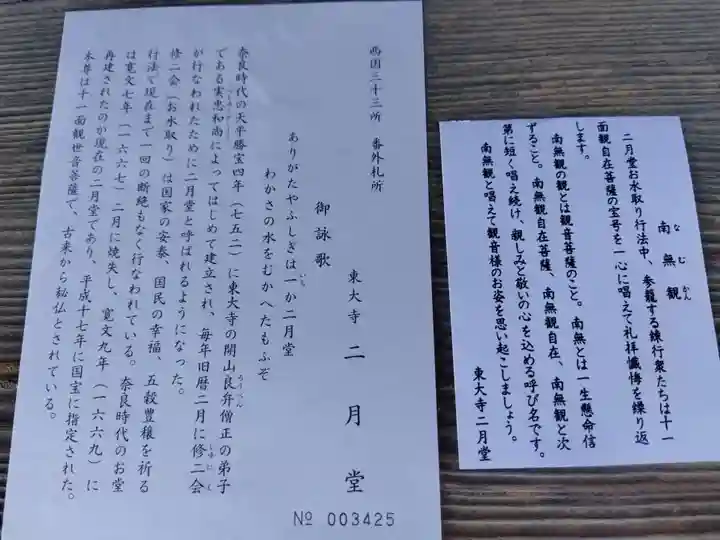 西国三十三所　番外札所
東大寺　二月堂
御詠歌
ありがたやふしぎは一か二月堂
いち
わかさの水をむかへたもふぞ
奈良時代の天平勝宝四年（七五二）に東大寺の開山良弁僧正の弟子
ろうべん
である実忠和尚によってはじめて建立され、毎年旧暦二月に修二会
しゅにえ
が行なわれたために二月堂と呼ばれるようになった。
修二会（お水取り）は国家の安泰、国民の幸福、五穀豊穣を祈る
行法で現在まで一回の断絶もなく行なわれている。奈良時代のお堂
は寛文七年（一六六七）二月に焼失し、寛文九年（一六六九）に
再建されたのが現在の二月堂であり、平成十七年に国宝に指定された。
本尊は十一面観世音菩薩で、古来から秘仏とされている。
№ 003425
南無観
なむかん
二月堂お水取り行法中、参籠する練行衆たちは十一
面観自在菩薩の宝号を一心に唱えて礼拝懺悔を繰り返
します。
南無観の観とは観音菩薩のこと。南無とは一生懸命信
ずること。南無観自在菩薩、南無観自在、南無観と次
第に短く唱え続け、親しみと敬いの心を込める呼び名です。
南無観と唱えて観音様のお姿を思い起こしましょう。
東大寺二月堂